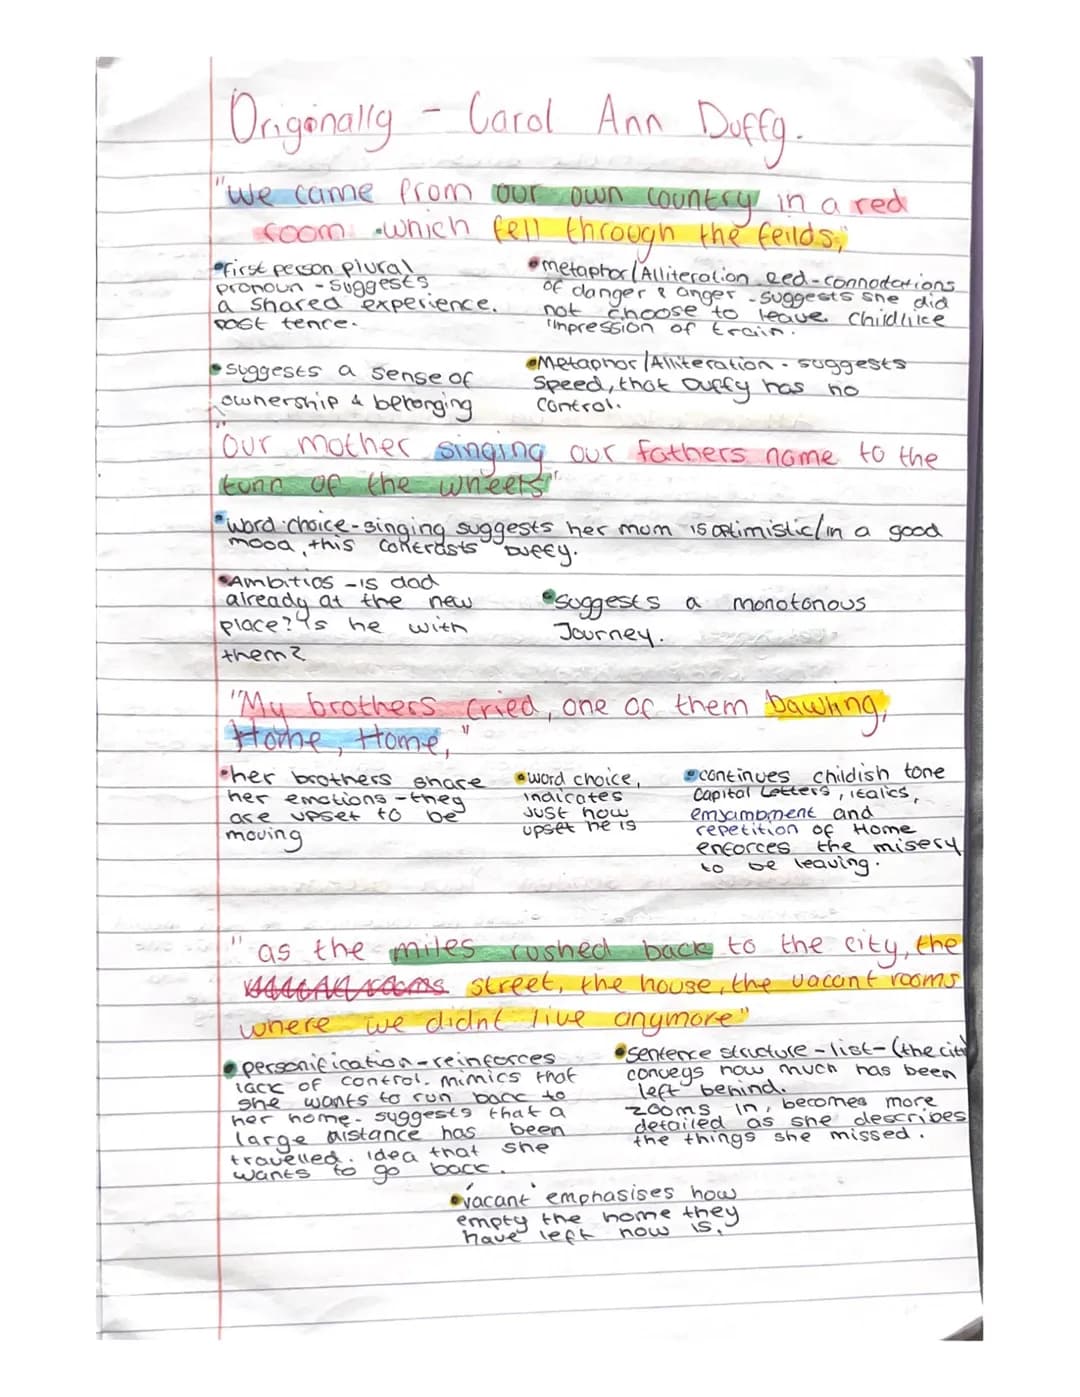 Originally - Carol Ann Duffy.
"We came from our own country in a red
room which fell through the feilds,"
•first person plural
pronoun - suggests
a shared experience.
past tence.
•metaphor/Alliteration red - connotations
of danger & anger - suggests she did
not choose to leave. Childlike
impression of train.
•suggests a sense of
ownership & belonging
•Metaphor/Alliteration - suggests
speed, that Duffy has no
control.
"Our mother singing our fathers name to the
tunn of the wheels"
•word choice - singing suggests her mum is optimistic/in a good
mood, this contrasts Duffy.
•Ambitios - is dad
already at the new
place? Is he with
them?
•suggests a monotonous
Journey.
"My brothers cried, one of them bawling,
Home, Home,"
•her brothers share
her emotions - they
are upset to be
moving
•word choice,
indicates
just how
upset he is
•continues childish tone
Capital Letters, italics,
emjambment and
repetition of Home
enforces the misery
to be leaving.
"as the miles rushed back to the city, the
street, the house, the vacant rooms
where we didnt live anymore"
•personification - reinforces
lack of control. mimics that
she wants to run back to
her home. suggests that a
large distance has been
travelled. idea that she
wants to go back.
•sentence structure - list - (the cit
conveys how much has been
left behind.
zooms in, becomes more
detailed as she describes
the things she missed.
•'vacant' emphasises how
empty the home they
have left now is.